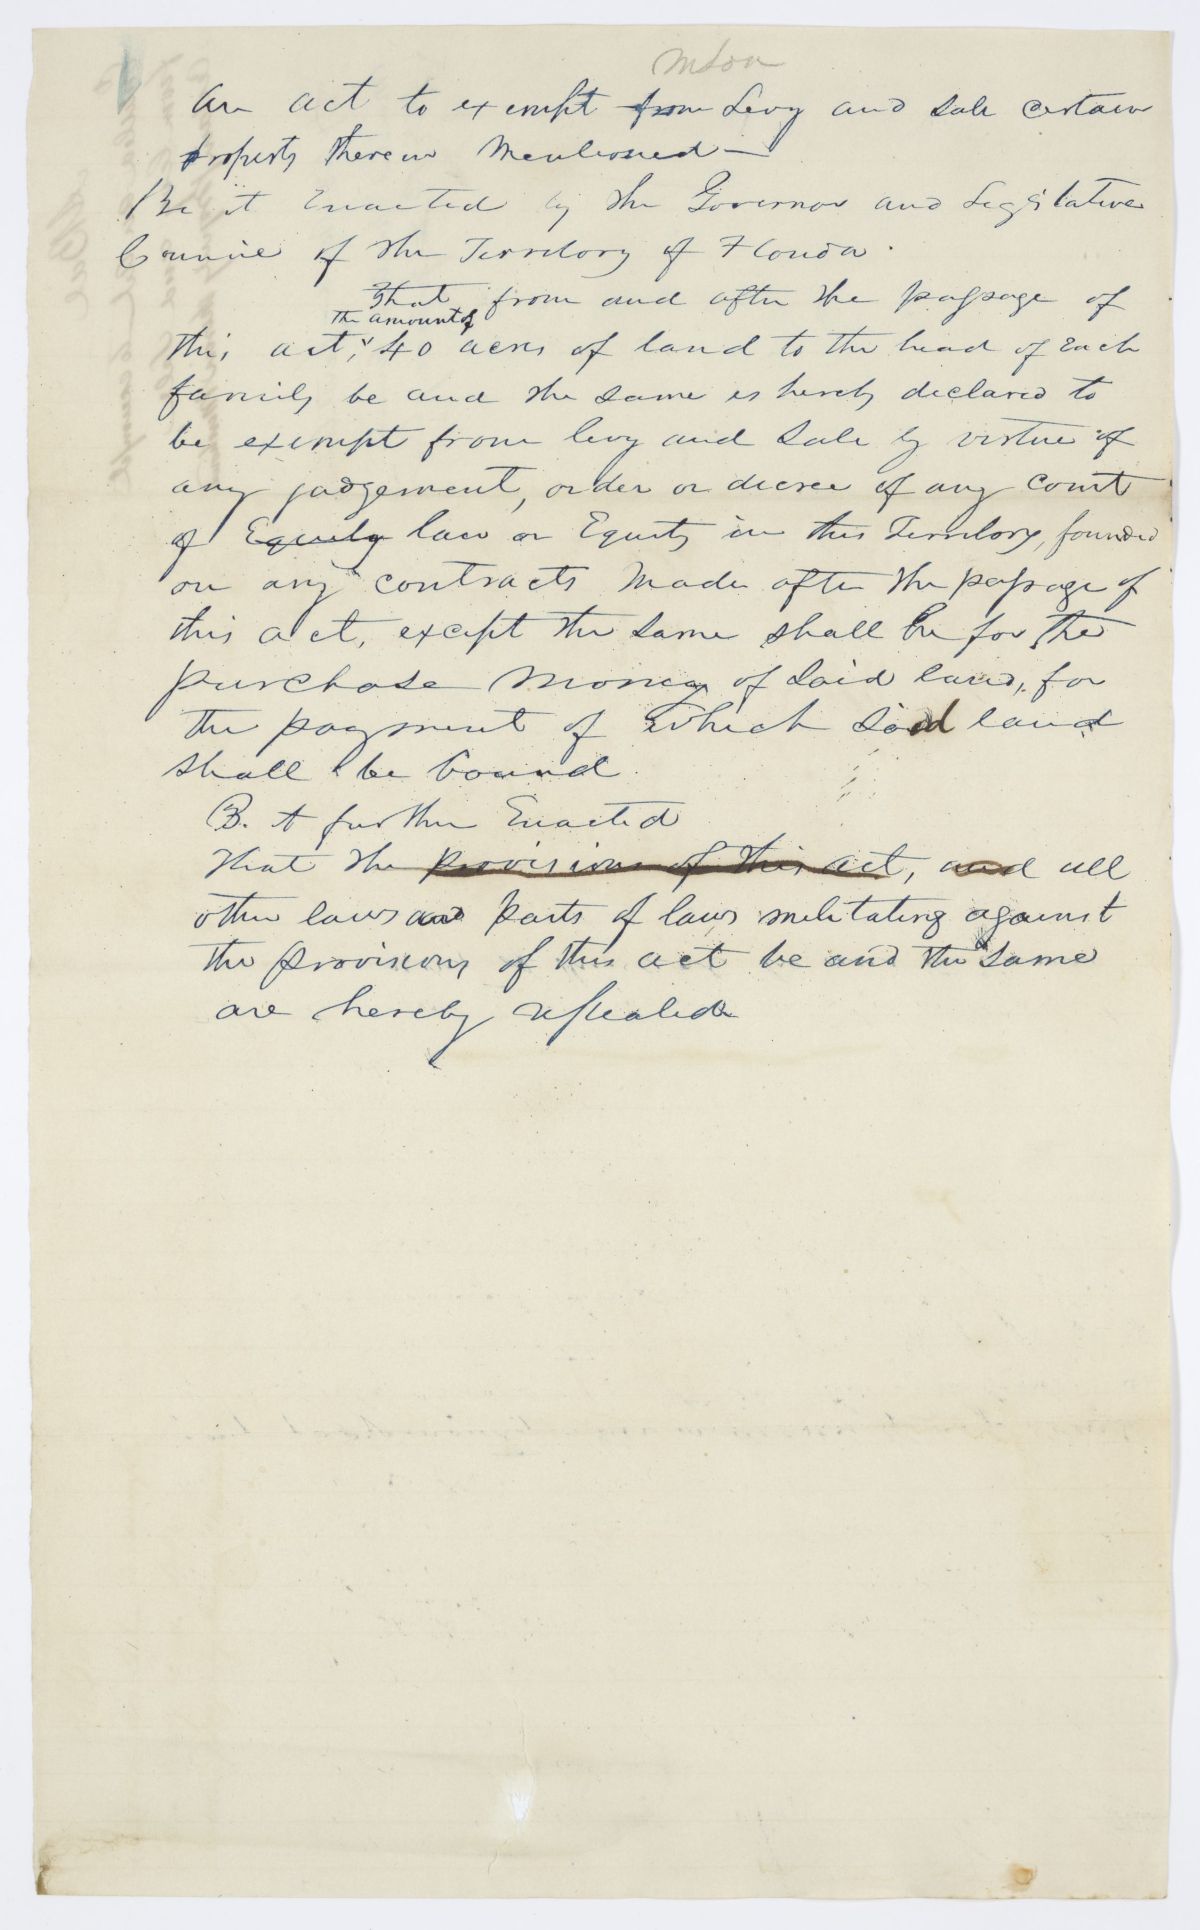 An act to exempt from Levy and Sale certain
property therein Mentioned—
Be it Enacted by the Governor and Legislative
Council of the Territory of Florida.
That from and after the passage of
the amount of
this act, 40 acres of land to the head of Each
family be and the same is hereby declared to
be exempt from levy and Sale by virtue of
any judgement, order or decree of any Court
of Equity law or Equity in this Territory, founded
on any contracts Made after the passage of
this act, except the same shall be for the
purchase Money of Said land, for
the payment of Which Said land
shall be bound
B. it further Enacted
that the provisions of this act, and all
other laws and parts of laws militating against
the provisions of this act be and the same
are hereby repealed